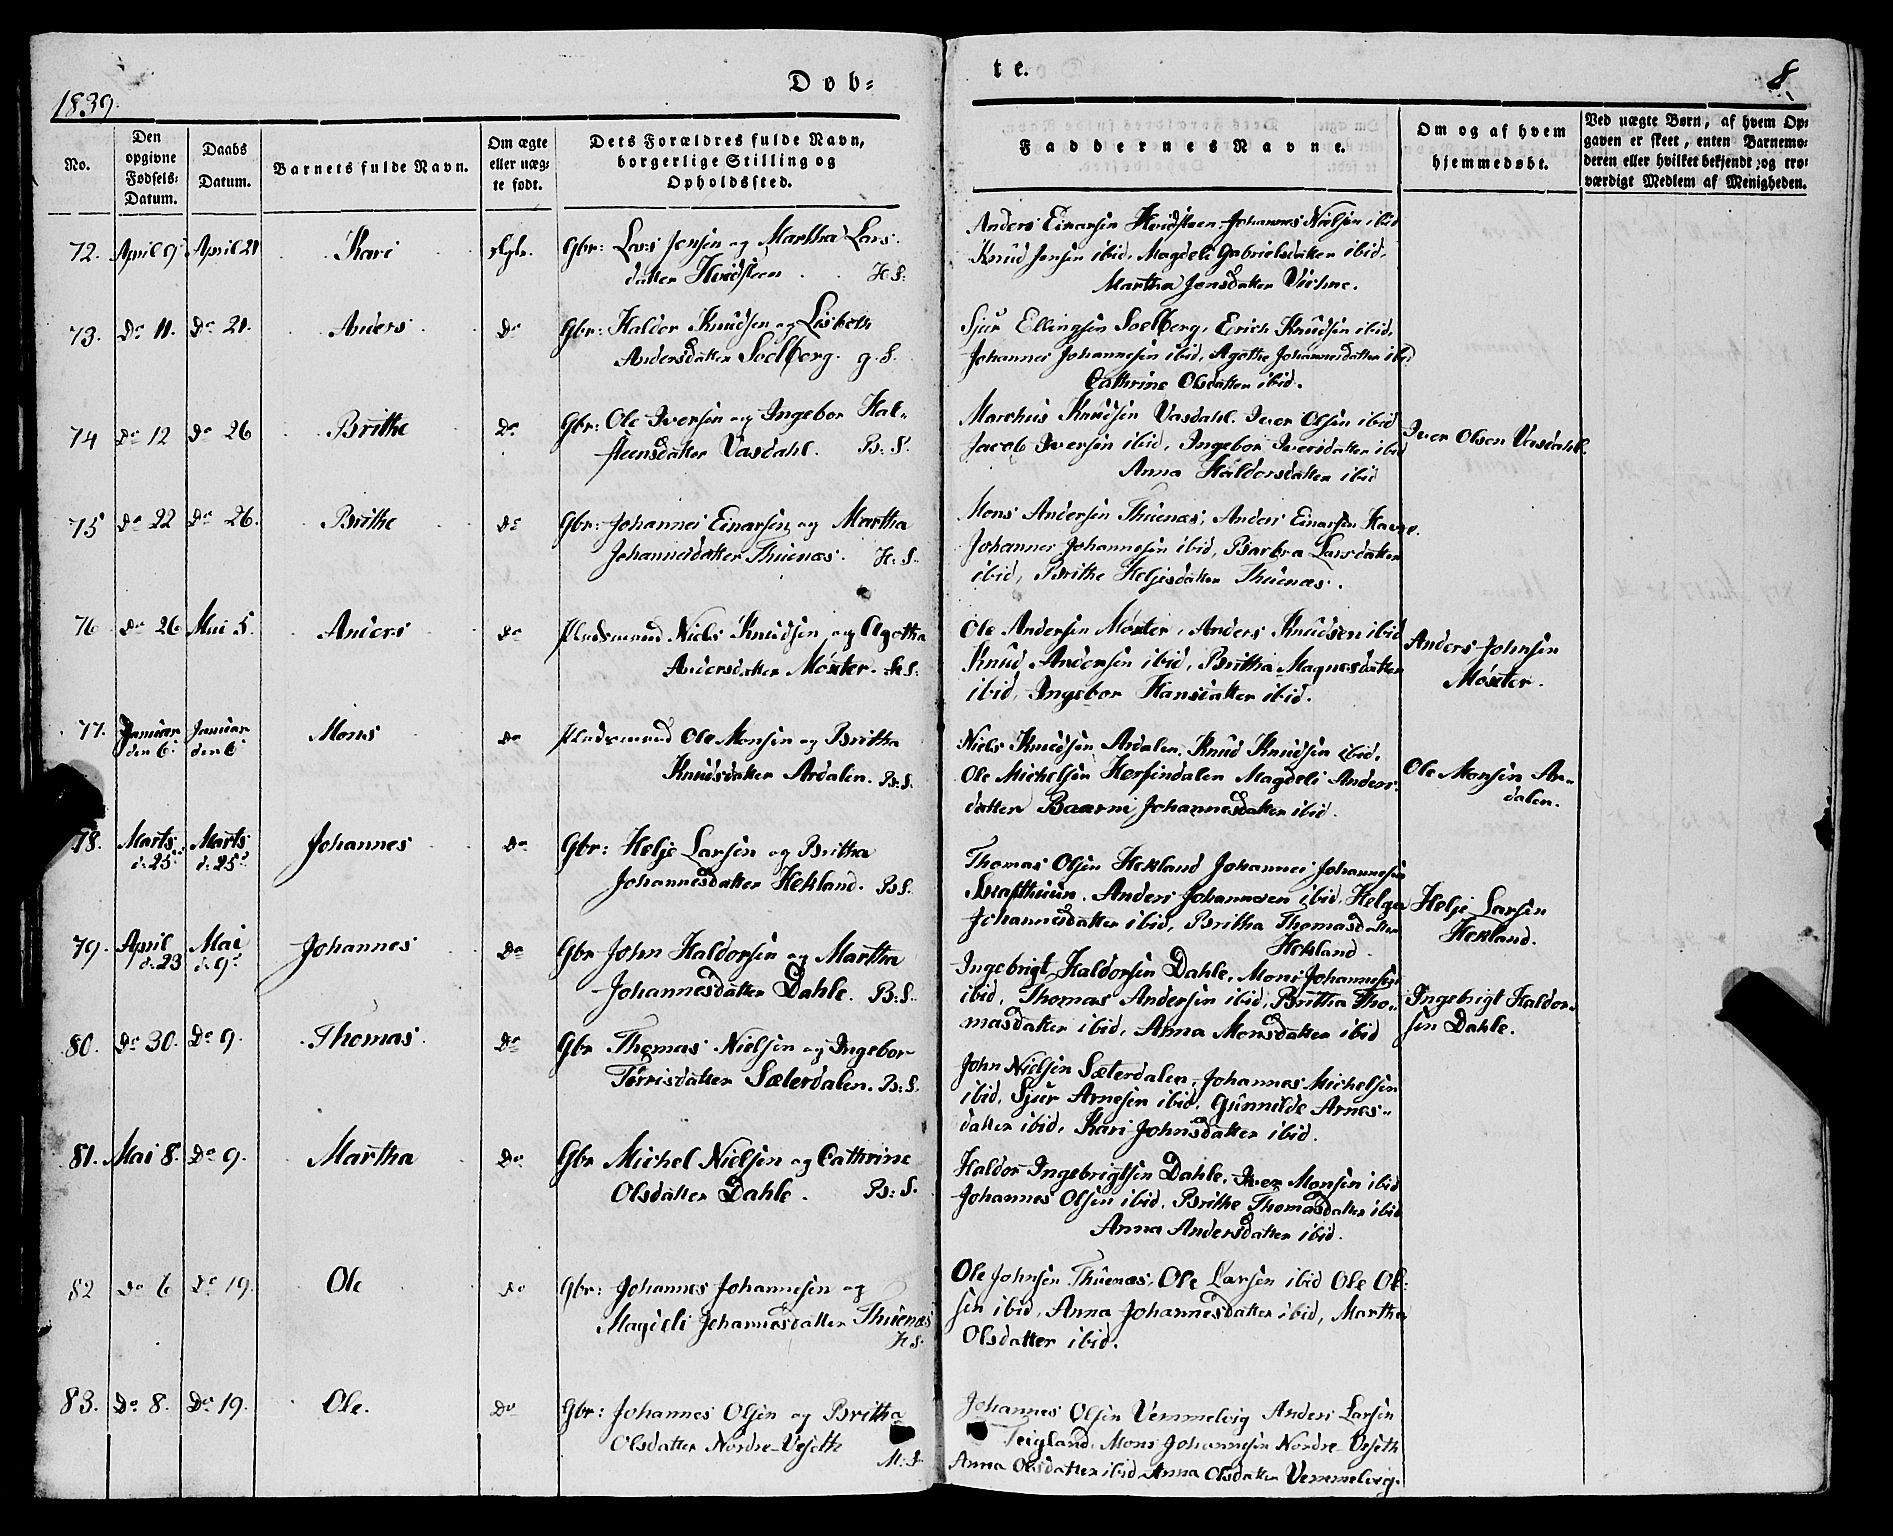 1839.
Døb=
te.
8
No.
Den opgivne Fødsels-Datum.
Daabs Datum.
Barnets fulde Navn.
Om ægte eller uæg-te født.
Dets Forældres fulde Navn, borgerlige Stilling og Opholdssted.
Faddernes Navne.
Om og af hvem hjemmedøbt.
Ved uægte Børn, af hvem Op-
gaven er skeet, enten Barnemo-
deren eller hvilket bekjendt og tro-
værdigt Medlem af Menigheden.
72. April 9 April 21 Kari Ægte. Gbr: Lars Jensen og Martha Lars-
datter Hvidsteen H S.
Anders Einarsen Hvidsteen, Johannes Nielsen ibid
Knud Jensen ibid, Magdeli Gabrielsdatter ibid,
Martha Jensdatter Viehne.
73. Do 11. Do 21. Anders Do Gbr: Haldor Knudsen og Lisbeth
Andersdatter Soelberg. g. S.
Sjur Ellingsen Soelberg, Erich Knudsen ibid,
Johannes Johannesen ibid, Agathe Johannesdatter ibid
Cathrine Olsdatter ibid.
74 Do 12 Do 26 Brithe Do Gbr: Ole Iversen og Ingebor Hal-
steensdatter Vasdahl. B. S.
Marchus Knudsen Vasdahl. Iver Olsen ibid
Jacob Iversen ibid, Ingebor Iversdatter ibid
Anna Haldorsdatter ibid
Iver Olsen Vasdahl.
75 Do 22 Do 26. Brithe Do Gbr: Johannes Einarsen og Martha
Johannesdatter Thuenæs. H. S.
Mons Andersen Thuenæs, Anders Einarsen
Johannes Johannesen ibid, Barbra Larsdatter
ibid, Brithe Heljesdatter Thuenæs.
76 Do 26 Mai 5. Anders Do Pladsmand Niels Knudsen og Agatha
Andersdatter Møxter. H S.
Ole Andersen Møxter, Anders Knudsen ibid
Knud Andersen ibid, Britha Magnesdatter
ibid, Ingebor Hansdatter ibid.
Anders Johnsen
Møxter.
77. Januar den 6 Januar den 6 Mons Do Pladsmand Ole Monsen og Britha
Knudsdatter Ardalen. B. S.
Niels Knudsen Ardalen, Knud Knudsen ibid,
Ole Michelsen Herfindalen Magdeli Anders-
datter Baarni Johannesdatter ibid.
Ole Monsen Ar-
dalen.
78. Marts d: 25 Marts d: 25 Johannes Do Gbr: Helje Larsen og Britha
Johannesdatter Hekland. B S.
Thomas Olsen Hekland Johannes Johannesen
Anders Johannesen ibid, Helga
Johannesdatter ibid, Britha Thomasdatter
Hekland
Helje Larsen
Hekland.
79. April d: 23 Mai d: 9 Johannes Do Gbr John Haldorsen og Martha
Johannesdatter Dahle. B. S.
Ingebrigt Haldorsen Dahle, Mons Johannesen
ibid, Thomas Andersen ibid, Britha Tho-
masdatter ibid, Anna Monsdatter ibid
Ingebrigt Haldor-
sen Dahle.
80. Do 30. Do 9. Thomas Do Gbr Thomas Nielsen og Ingebor
Tørrisdatter Sæterdalen. B. S.
John Nielsen Sæterdalen, Johannes Michelsen
ibid, Sjur Arnesen ibid, Gunnilde Arnes-
datter ibid, Kari Johnsdatter ibid.
81. Mai 8. Do 9. Martha Do Gbr Michel Nielsen og Cathrine
Olsdatter Dahle. B. S.
Haldor Ingebrigtsen Dahle, Iver Monsen ibid
Johannes Olsen ibid, Brithe Thomasdatter ibid
Anna Andersdatter ibid.
82 Do 6 Do 19. Ole Do Gbr: Johannes Johannesen og
Magdeli Johannesdatter Thuenæs
H S.
Ole Johnsen Thuenæs, Ole Larsen ibid Ole Ol-
sen ibid, Anna Johannesdatter ibid, Martha
Olsdatter ibid.
83. Do 8. Do 19. Ole. Do Gbr: Johannes Olsen og Britha
Olsdatter Nordre-Vesethe
M. S.
Johannes Olsen Vemmelvig Anders Larsen
Teigland, Mons Johannesen Nordre-Veseth
Anna Olsdatter ibid Anna Olsdatter Vemmelvig.